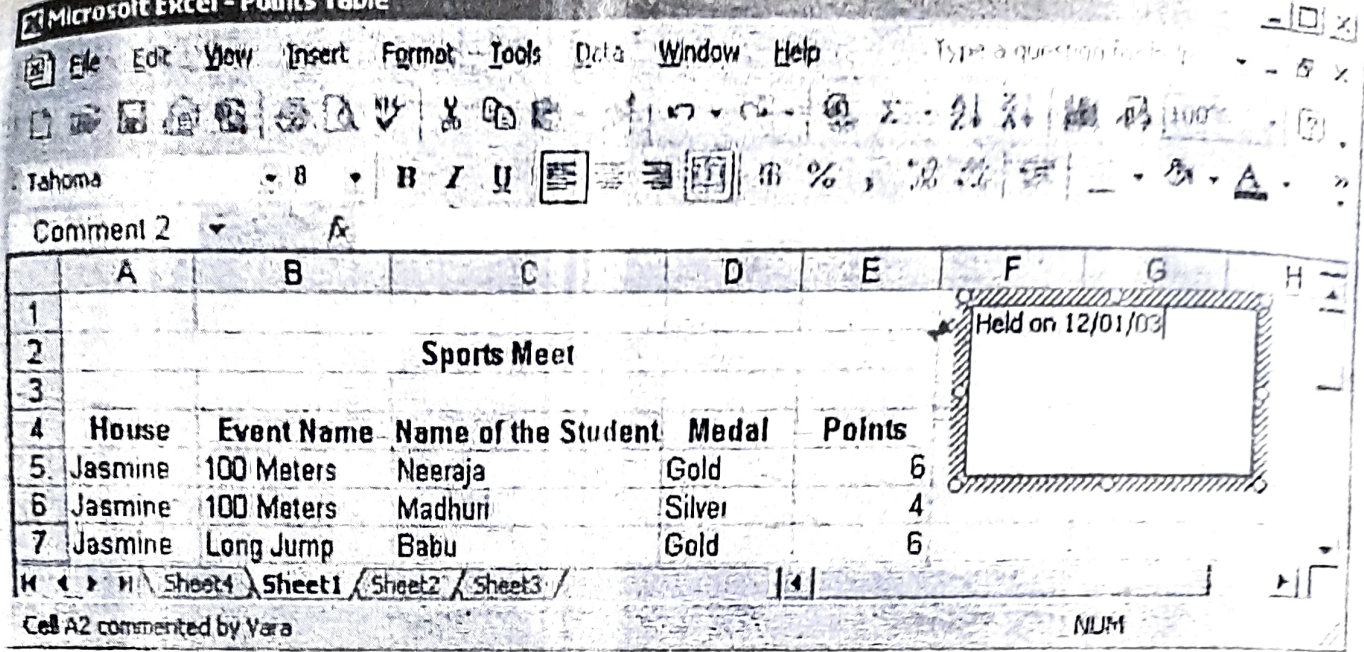 Microsoft Excel - Points Table
File Edit View Insert Format Tools Data Window Help Type a question
100%
Tahoma 8 B I U % , A
Comment 2 fx
A B C D E F G H
1 Held on 12/01/03
2 Sports Meet
3
4 House Event Name Name of the Student Medal Points
5 Jasmine 100 Meters Neeraja Gold 6
6 Jasmine 100 Meters Madhuri Silver 4
7 Jasmine Long Jump Babu Gold 6
Sheet4 Sheet1 Sheet2 Sheet3
Cell A2 commented by Vara NUM